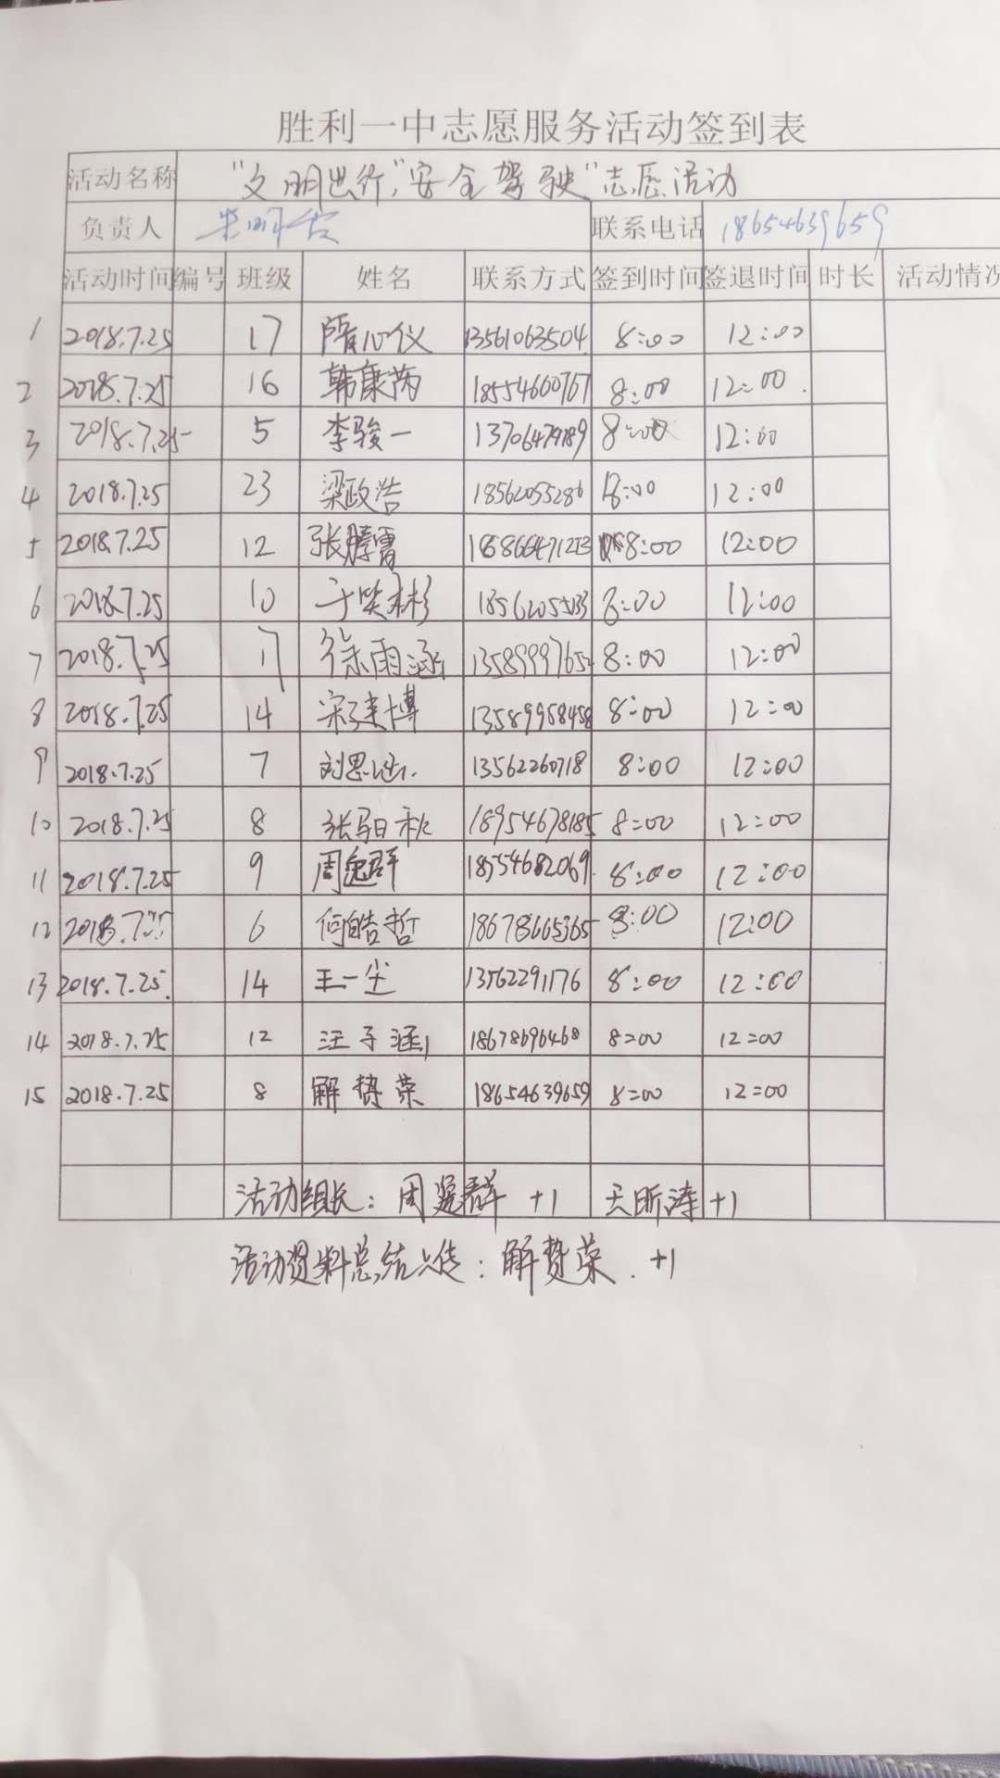 胜利一中志愿服务活动签到表
活动名称 "文明出行","安全驾驶"志愿活动
负责人 联系电话 18654639659
活动时间 编号 班级 姓名 联系方式 签到时间 签退时间 时长 活动情况
1 2018.7.25 17 隋心仪 13561063504 8:00 12:00
2 2018.7.25 16 韩康芮 18554660767 8:00 12:00
3 2018.7.25 5 李骏一 13706479189 8:00 12:00
4 2018.7.25 23 梁政浩 18562055286 8:00 12:00
5 2018.7.25 12 8:00 12:00
6 2018.7.25 10 于笑彬 8:00 12:00
7 2018.7.25 17 徐雨涵 8:00 12:00
8 2018.7.25 14 13589958458 8:00 12:00
9 2018.7.25 7 13562260718 8:00 12:00
10 2018.7.25 8 18954678185 8:00 12:00
11 2018.7.25 9 周逸群 18554682069 8:00 12:00
12 6 何皓哲 18678665365 8:00 12:00
13 2018.7.25. 14 王一尘 13562291176 8:00 12:00
14 2018.7.25 12 汪子涵 18678696468 8:00 12:00
15 2018.7.25 8 解赞荣 18654639659 8:00 12:00
活动组长:周逸群 +1 昕涛 +1
活动资料总结上传:解赞荣. +1